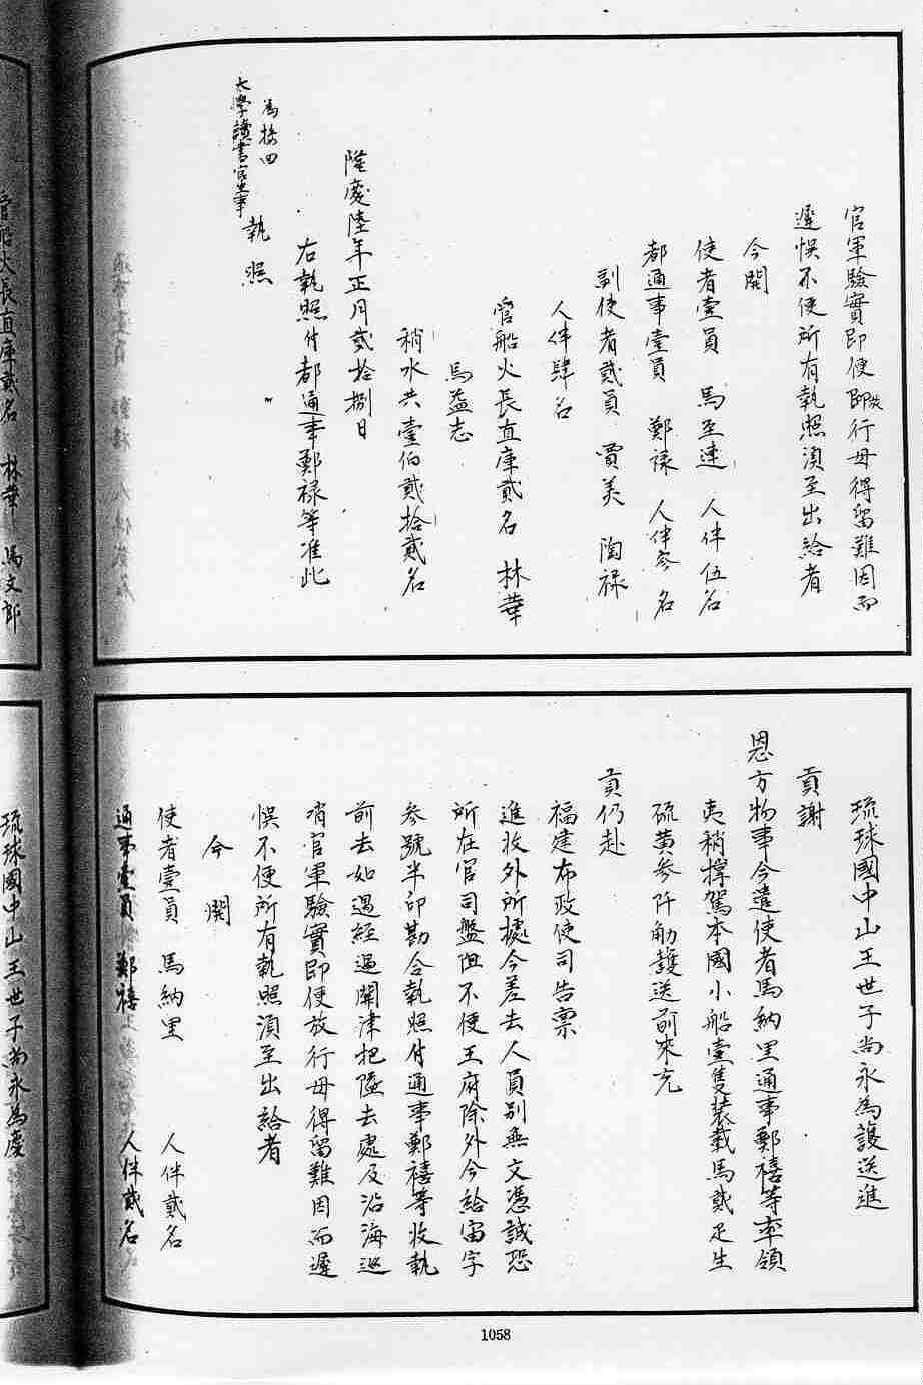 官軍驗實即便放行毋得留難因而
遲悞不便所有執照湏至出給者
今開
使者壹員 馬至連 人伴伍名
都通事壹員 鄭禄 人伴叄名
副使者貳員 賈美 陶禄
人伴肆名
管船火長直庫貳名 林華
馬益志
稍水共壹伯貳拾貳名
隆慶陸年正月貳拾捌日
右執照付都通事鄭禄等准此
為接回
太學讀書官生事
執照
琉球國中山王世子尚永為護送進
貢謝
恩方物事今遣使者馬納里通事鄭禧等率領
夷稍撑駕本國小船壹隻装載馬貳疋生
硫黄參阡觔護送前来充
貢仍赴
福建布政使司告禀
進收外所據今差去人員别無文憑誠恐
所在官司盤阻不便王府除外今給宙字
叄號半印勘合執照付通事鄭禧等收執
前去如遇經過關津把隘去處及沿海巡
哨官軍驗實即便放行毋得留難因而遲
悞不便所有執照湏至出給者
今開
使者壹員 馬納里 人伴貳名
通事壹員 鄭禧 人伴貳名
1058
管船火長直庫貳名 林華 馬文郎
琉球國中山王世子尚永為慶